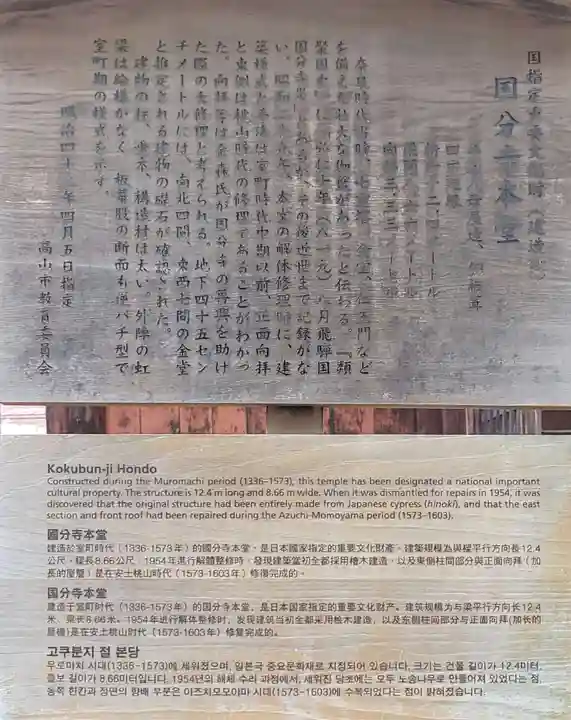 国指定重要文化財（建造物）
国分寺本堂
を備えた壮大な伽藍があったと伝わる。『類
国分寺
い。昭和二十九年、本堂の解体修理時に、建
築様式と手法は室町時代中期以前、正面向拝
と東側は桃山時代の修理であることがわかっ
た。向拝等は金森氏が国分寺の再興を助け
た際の大修理と考えられる。地下四十五セン
チメートルには、南北四間、東西七間の金堂
と推定される建物の礎石が確認された。
建物の柱、垂木、構造材は太い。外陣の虹
梁は絵様がなく、板蟇股の断面も逆バチ型で
室町期の様式を示す。
明治四十 年四月五日指定
高山市教育委員会
Kokubun-ji Hondo
Constructed during the Muromachi period (1336–1573), this temple has been designated a national important
cultural property. The structure is 12.4 m long and 8.66 m wide. When it was dismantled for repairs in 1954, it was
discovered that the original structure had been entirely made from Japanese cypress (hinoki), and that the east
section and front roof had been repaired during the Azuchi-Momoyama period (1573–1603).
國分寺本堂
建造於室町時代（1336-1573年）的國分寺本堂，是日本國家指定的重要文化財產。建築規模為與樑平行方向長12.4
公尺，樑長8.66公尺。1954年進行解體整修時，發現建築當初全都採用檜木建造，以及東側柱間部分與正面向拜（加
長的屋簷）是在安土桃山時代（1573-1603年）修復完成的。
国分寺本堂
建造于室町时代（1336-1573年）的国分寺本堂，是日本国家指定的重要文化财产。建筑规模为与梁平行方向长12.4
米，梁长8.66米。1954年进行解体整修时，发现建筑当初全都采用桧木建造，以及东侧柱间部分与正面向拜(加长的
屋檐)是在安土桃山时代（1573-1603年）修复完成的。
고쿠분지 절 본당
무로마치 시대(1336-1573)에 세워졌으며, 일본국 중요문화재로 지정되어 있습니다. 크기는 건물 길이가 12.4미터,
들보 길이가 8.66미터입니다. 1954년의 해체 수리 과정에서, 세워진 당초에는 모두 노송나무로 만들어져 있었다는 점,
동쪽 한칸과 정면의 향배 부분은 아즈치모모야마 시대(1573-1603)에 수복되었다는 점이 밝혀졌습니다.